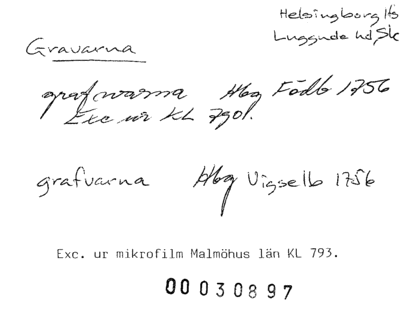 Helsingborg lfs
Luggude hd Sk
Gravarna
grafwarna Hbg Födb 1756
Exc ur KL 7901.
grafvarna Hbg Vigselb 1756
Exc. ur mikrofilm Malmöhus län KL 793.
00030897